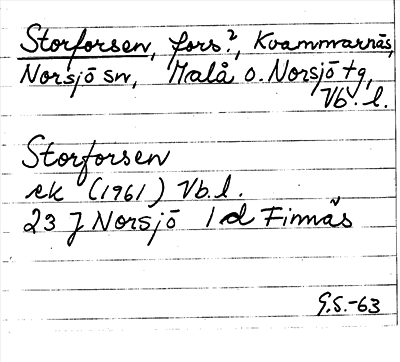 Storforsen, fors?, Kvammarnäs,
Norsjö sn, Malå o. Norsjö tg,
Vb. l.
Storforsen
ek (1961) Vb.l.
23 J Norsjö 1 d Finnäs
G.S.-63